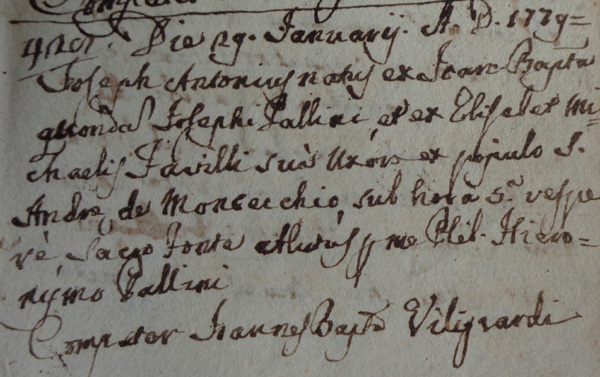 Die 29. Januarij. A. D. 1779=
Joseph Antonius natus ex Joan Bapta
quondã Josephi Pallini, et ex Elisabet Mi=
chaelis Favilli suâ Uxore ex populo S.
Andreę de Moncecchio, sub horâ 5.ª vespe
re Sacro Fonte ablutus p me Pleb. Hiero=
nymo Pallini
Compater Joannes Bapta Viligiardi